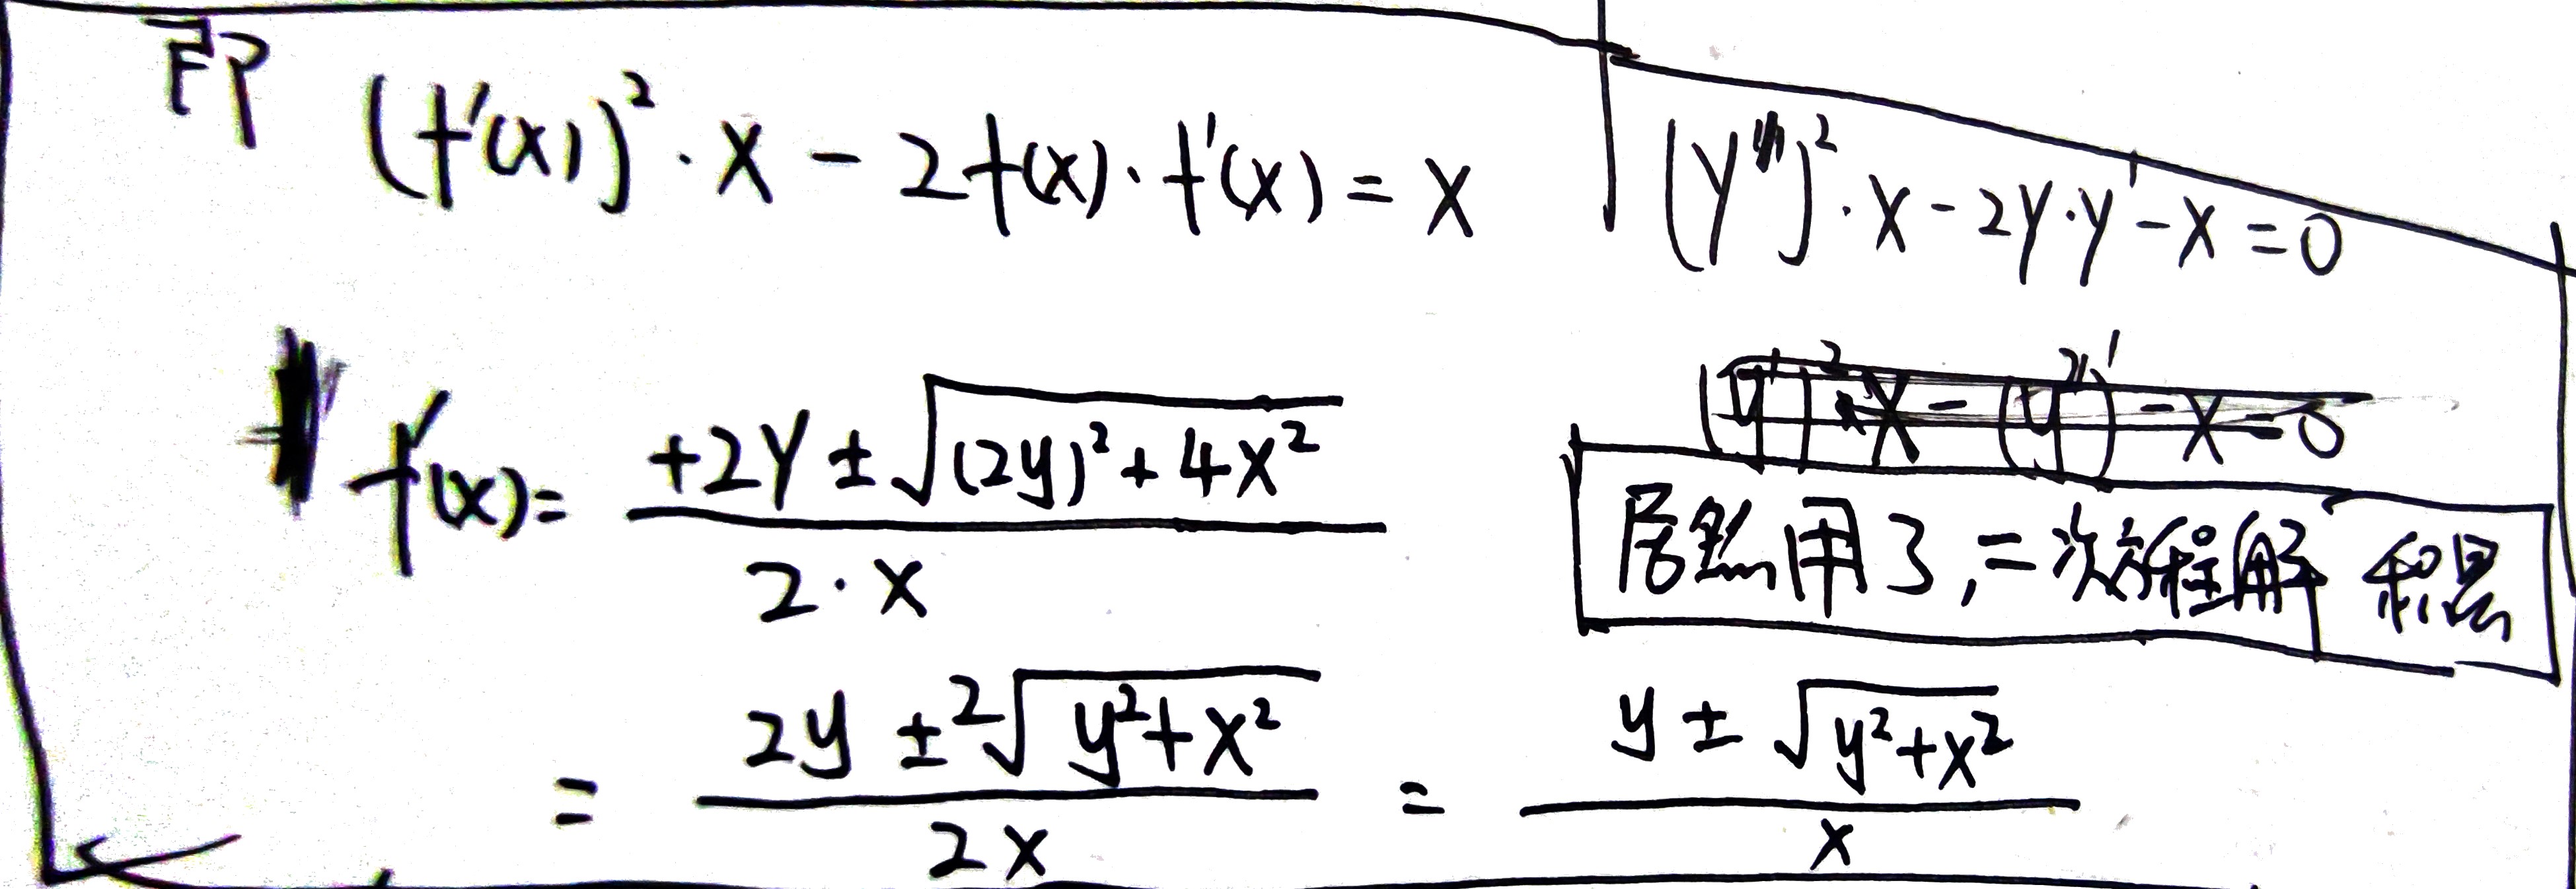 即 (f'(x))²·x - 2f(x)·f'(x) = x
(y')²·x - 2y·y' - x = 0
(y')²·x - (y²)' - x = 0
f'(x) = +2y ± √((2y)² + 4x²) / 2·x
居然用了,二次方程解 积累
= 2y ± 2√(y²+x²) / 2x = y ± √(y²+x²) / x